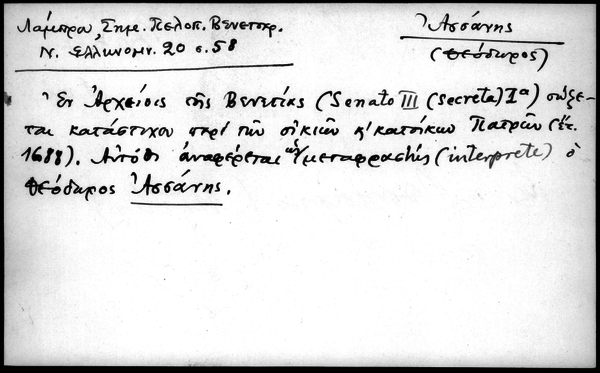 Λάμπρου, Σημ. Πελοπ. Βενετοκρ.
Ν. Ελληνομν. 20 σ. 58
Ἀσσάνης
(Θεόδωρος)
Ἐν Ἀρχείοις τῆς Βενετίας (Senato III (secreta) Iª) σώζε-
ται κατάστιχον περὶ τῶν οἰκιῶν κ' κατοίκων Πατρῶν (ἔτ.
1688). Αὐτόθι ἀναφέρεται ὡς μεταφραστής (interprete) ὁ
Θεόδωρος Ἀσσάνης.